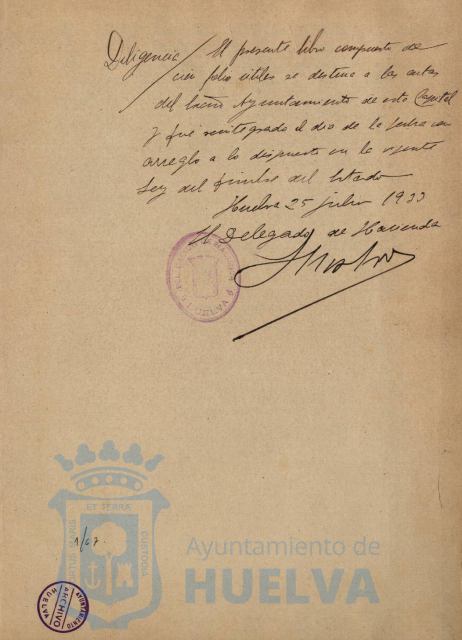 Diligencia / El presente libro compuesto de
cien folios útiles se destina a las actas
del Excmo Ayuntamiento de esta Capital
y fué reintegrado el dia de la fecha con
arreglo a lo dispuesto en la vigente
Ley del Timbre del Estado
Huelva 25 julio 1933
El Delegado de Hacienda
HUELVA
ET TERRÆ
CUSTODIA
PORTUS MARIS
1/67.
Ayuntamiento de
HUELVA
AYUNTAMIENTO
ARCHIVO
HUELVA